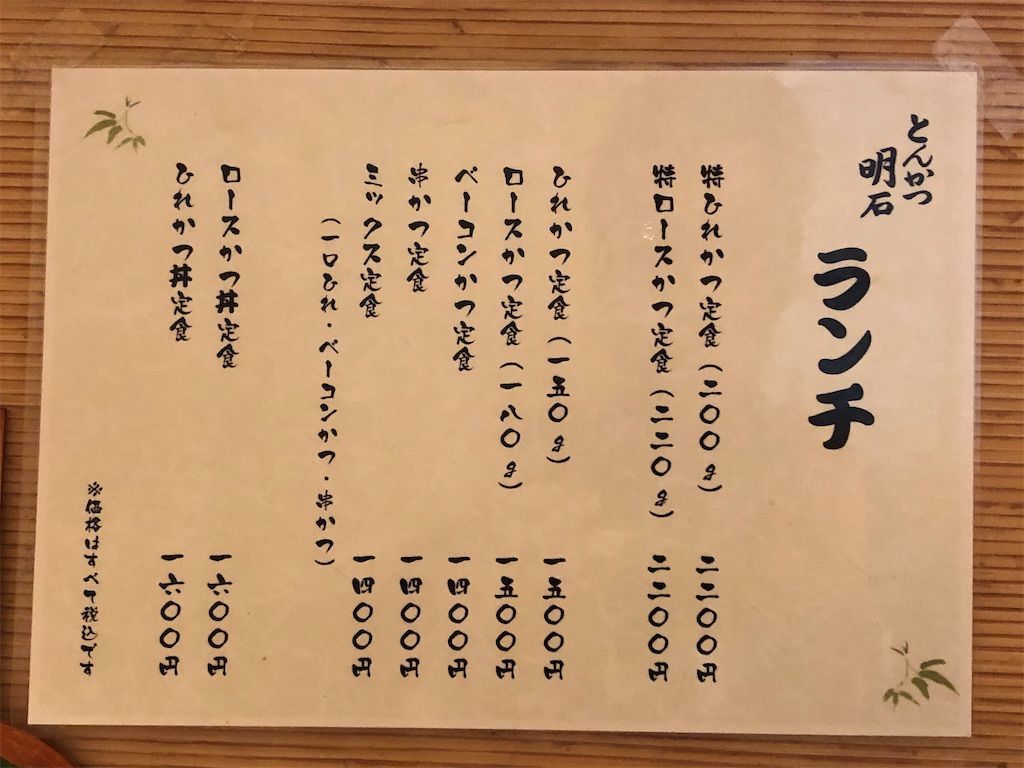 とんかつ
明石
ランチ
特ひれかつ定食（二〇〇g） 二二〇〇円
特ロースかつ定食（二二〇g） 二二〇〇円
ひれかつ定食（一五〇g） 一五〇〇円
ロースかつ定食（一八〇g） 一五〇〇円
ベーコンかつ定食 一四〇〇円
串かつ定食 一四〇〇円
ミックス定食 一四〇〇円
（一口ひれ・ベーコンかつ・串かつ）
ロースかつ丼定食 一六〇〇円
ひれかつ丼定食 一六〇〇円
※価格はすべて税込です